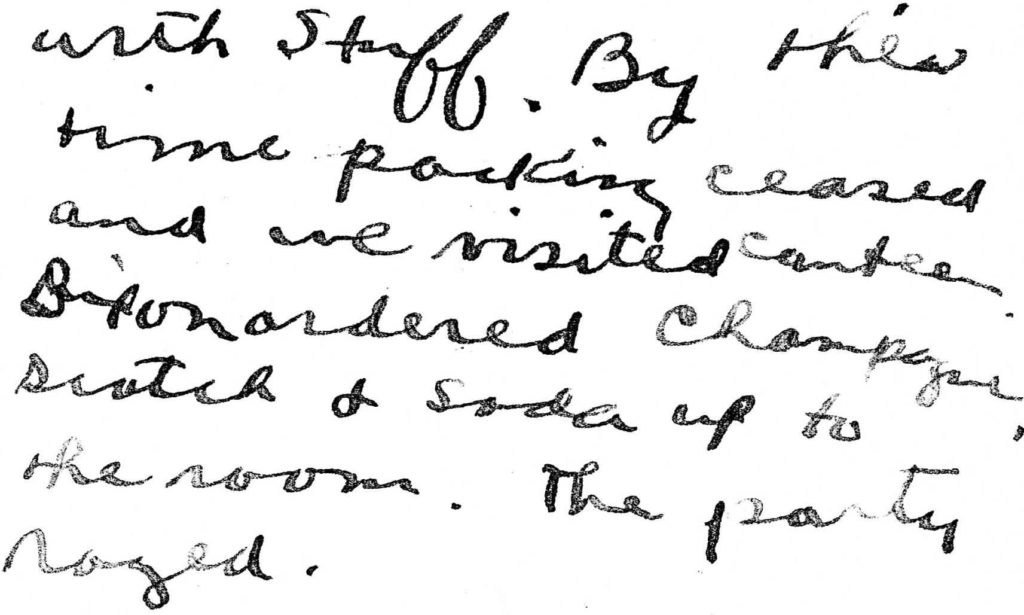 with Stuff. By this
time packing ceased
and we visited canteen
Bixon ordered Champagne,
Scotch & Soda up to
the room. The party
raged.